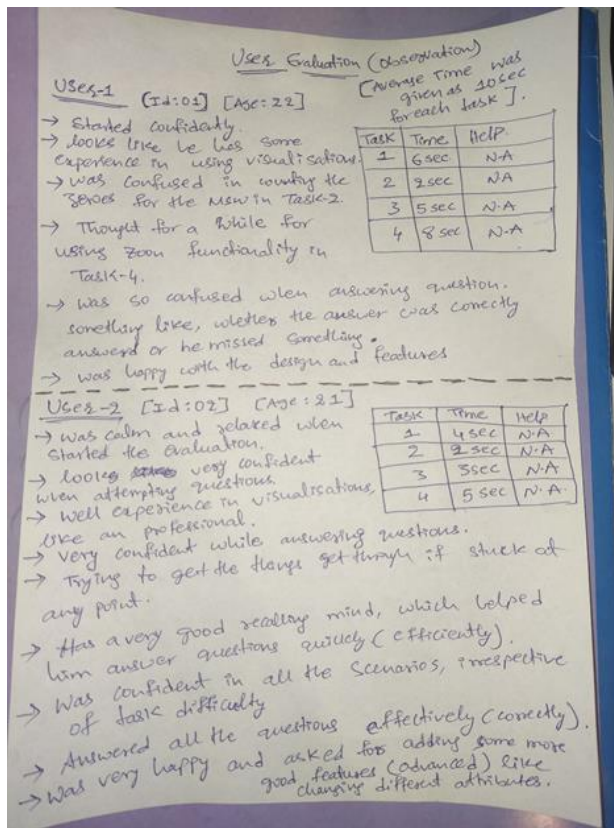 User Evaluation (observation)
[Average Time was
given as 10sec
for each task].
User-1 [Id:01] [Age:22]
→ Started confidently.
→ looks like he has some
experience in using visualisations.
→ was confused in counting the
zeroes for the MSW in Task-2.
→ Thought for a while for
using zoon functionality in
Task-4.
→ was so confused when answering question.
something like, whether the answer was correctly
answerd or he missed something.
→ was happy with the design and features
Task Time Help.
1 6sec N.A
2 9sec NA
3 5sec N.A
4 8sec N.A
User-2 [Id:02] [Age:21]
→ was calm and relaxed when
started the evaluation.
→ looks very confident
when attempting questions.
→ well experience in visualisations,
like an professional.
→ very confident while answering questions.
→ Trying to get the things get through if stuck at
any point.
→ Has a very good recalling mind, which helped
him answer questions quickly (efficiently).
→ Was confident in all the Scenarios, irrespective
of task difficulty
→ Answered all the questions effectively (correctly).
→ Was very happy and asked for adding some more
good features (advanced) like
changing different attributes.
Task Time Help
1 4sec N.A
2 9sec N.A
3 3sec N.A
4 5sec N.A.